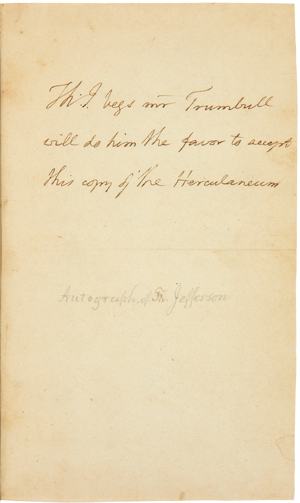 Th: J. begs mr Trumbull
will do him the favor to accept
this copy of the Herculaneum
Autograph of Th. Jefferson